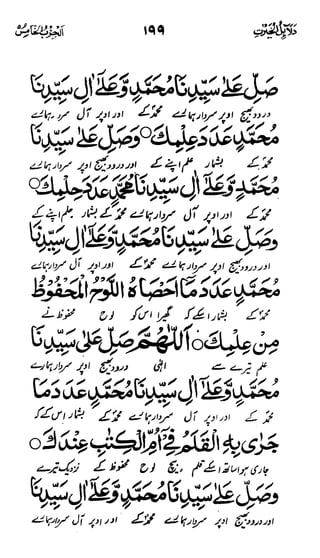 دلائل الخیرات ۱۹۹ الحزب الخامس
صَلِّ عَلٰى سَيِّدِنَا مُحَمَّدٍ وَّعَلٰٓى اٰلِ سَيِّدِنَا
درود بھیج اوپر سردار ہمارے محمدؐ کے اور اوپر آل سردار ہمارے
مُحَمَّدٍ عَدَدَ عِلْمِكَ ○ وَصَلِّ عَلٰى سَيِّدِنَا
محمدؐ کے بشمار علم اپنے کے اور درود بھیج اوپر سردار ہمارے
مُحَمَّدٍ وَّعَلٰٓى اٰلِ سَيِّدِنَا مُحَمَّدٍ عَدَدَ حِلْمِكَ ○
محمدؐ کے اور اوپر آل سردار ہمارے محمدؐ کے بشمار حلم اپنے کے
وَصَلِّ عَلٰى سَيِّدِنَا مُحَمَّدٍ وَّعَلٰٓى اٰلِ سَيِّدِنَا
اور درود بھیج اوپر سردار ہمارے محمدؐ کے اور اوپر آل سردار ہمارے
مُحَمَّدٍ عَدَدَ مَآ اَحْصَاهُ اللَّوْحُ الْمَحْفُوْظُ
محمدؐ کے بشمار اسکے کہ گھیرا اس کو لوح محفوظ نے
مِنْ عِلْمِكَ ○ اَللّٰهُمَّ صَلِّ عَلٰى سَيِّدِنَا
علم تیرے سے الٰہی درود بھیج اوپر سردار ہمارے
مُحَمَّدٍ وَّعَلٰٓى اٰلِ سَيِّدِنَا مُحَمَّدٍ عَدَدَ مَا
محمدؐ کے اور اوپر آل سردار ہمارے محمدؐ کے بشمار اس کے کہ
جَرٰى بِهِ الْقَلَمُ فِيْٓ اُمِّ الْكِتٰبِ عِنْدَكَ ○
جاری ہوا ساتھ اسکے قلم بیچ لوح محفوظ کے نزدیک تیرے
وَصَلِّ عَلٰى سَيِّدِنَا مُحَمَّدٍ وَّعَلٰٓى اٰلِ سَيِّدِنَا
اور درود بھیج اوپر سردار ہمارے محمدؐ کے اور اوپر آل سردار ہمارے